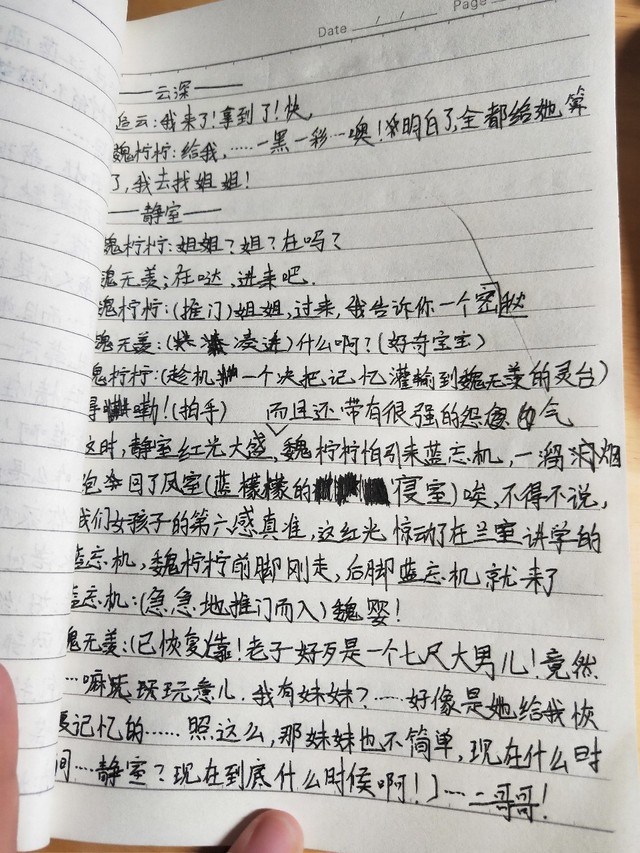 Date / / Page
——云深——
追云:我来了!拿到了!快,
魏柠柠:给我,……一黑一彩…噢!明白了,全都给她算
了,我去找姐姐!
——静室——
魏柠柠:姐姐?姐?在吗?
魏无羡:在哒,进来吧.
魏柠柠:(推门)姐姐,过来,我告诉你一个密秋
魏无羡:(凑进)什么啊?(好奇宝宝)
魏柠柠:(趁机一个决把记忆灌输到魏无羡的灵台)
得嘞!(拍手) 而且还带有很强的怨气
这时,静室红光大盛,魏柠柠怕引来蓝忘机,一溜烟
跑回了凤室(蓝檬檬的寝室)唉,不得不说,
我们女孩子的第六感真准,这红光惊动了在兰室讲学的
蓝忘机,魏柠柠前脚刚走,后脚蓝忘机就来了
蓝忘机:(急急地推门而入)魏婴!
魏无羡:(已恢复)靠!老子好歹是一个七尺大男儿!竟然
…嘛玩意儿.我有妹妹?……好像是她给我恢
复记忆的……照这么,那妹妹也不简单,现在什么时
间…静室?现在到底什么时候啊!)……二哥哥!